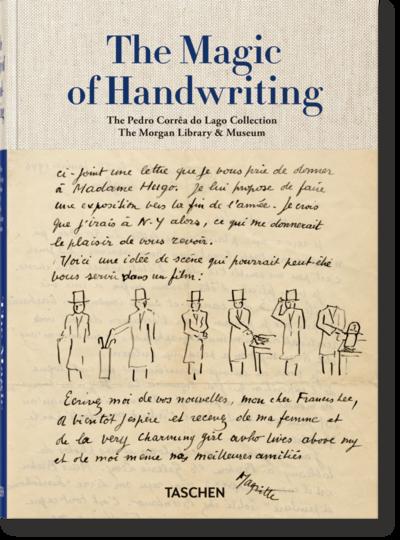 The Magic
of Handwriting
The Pedro Corrêa do Lago Collection
The Morgan Library & Museum
ci-joint une lettre que je vous prie de donner
à Madame Hugo. Je lui propose de faire
une exposition vers la fin de l'année. Je crois
que j'irais à N-Y alors, ce qui me donnerait
le plaisir de vous revoir.
Voici une idée de scène qui pourrait peut-être
vous servir dans un film :
Ecrivez moi de vos nouvelles, mon cher Francis Lee,
A bientôt j'espère et recevez de ma femme et
de la very charming girl who lives above my
et de moi même nos meilleures amitiés
Magritte
TASCHEN